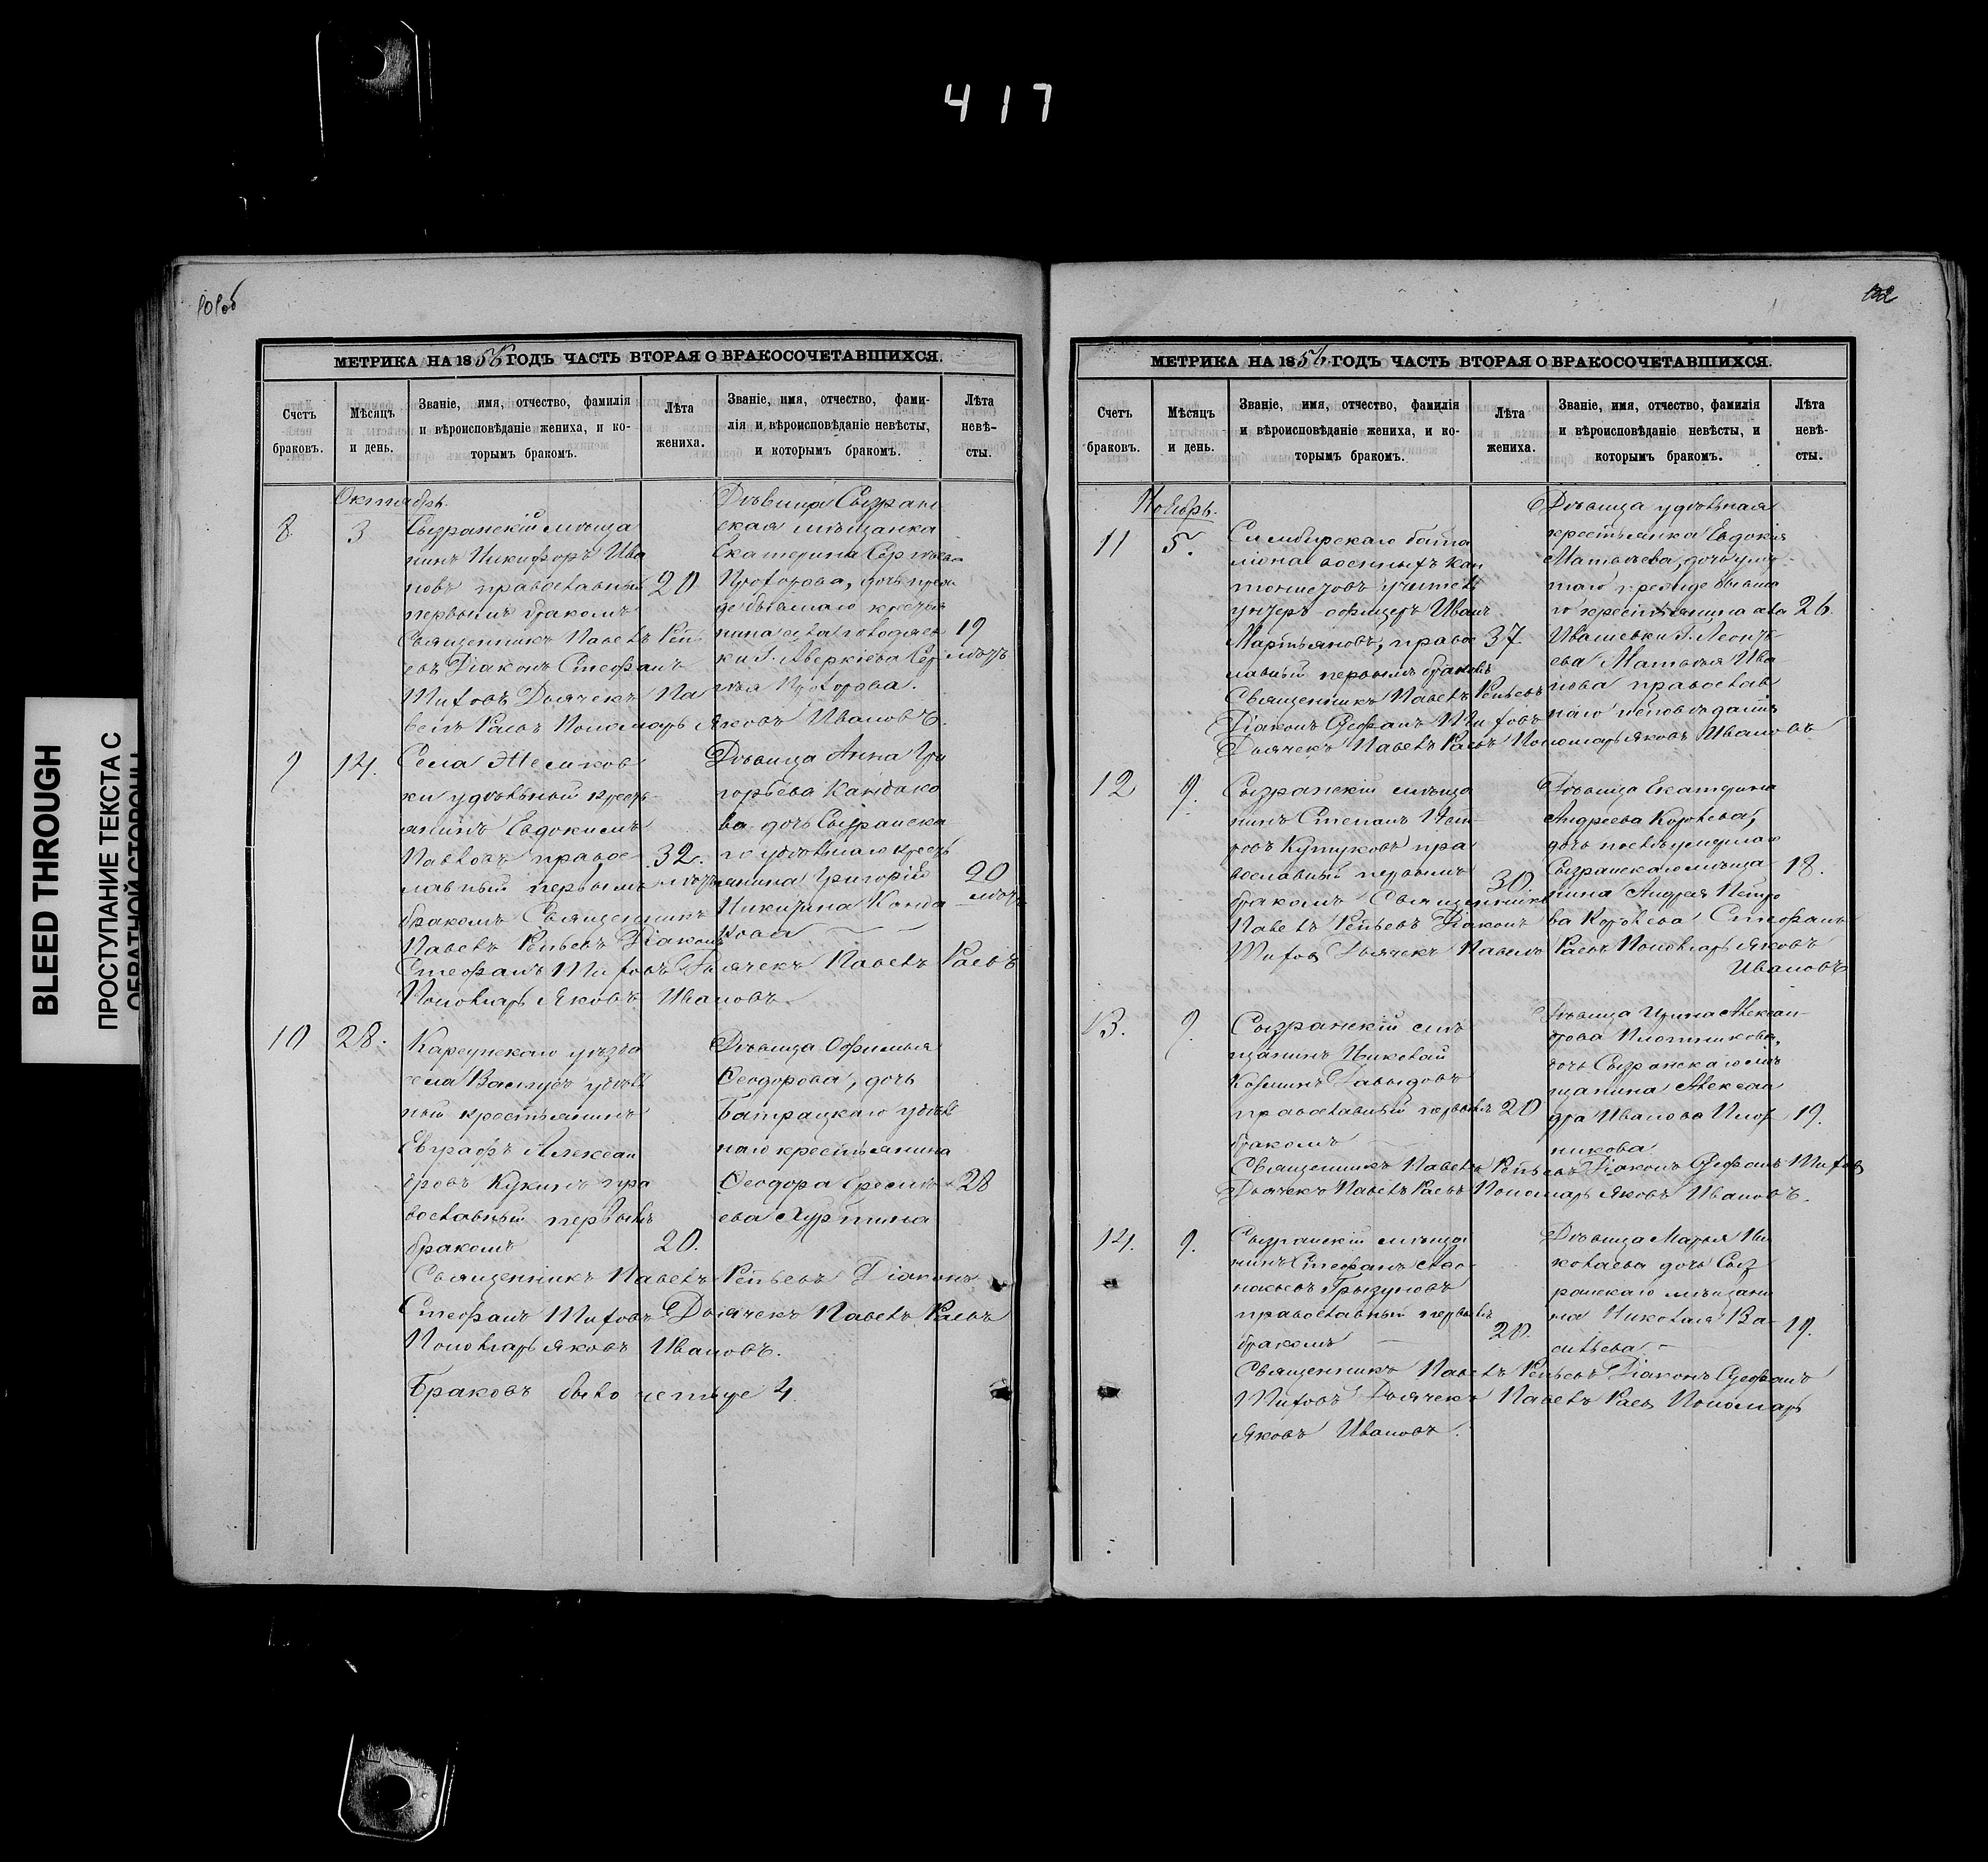 417
BLEED THROUGH
ПРОСТУПАНИЕ ТЕКСТА С
ОБРАТНОЙ СТОРОНЫ
101об
МЕТРИКА НА 1856 ГОДЪ ЧАСТЬ ВТОРАЯ О БРАКОСОЧЕТАВШИХСЯ.
Счетъ браковъ.
Мѣсяцъ и день.
Званіе, имя, отчество, фамилія
и вѣроисповѣданіе жениха, и ко-
торымъ бракомъ.
Лѣта жениха.
Званіе, имя, отчество, фами-
лія и вѣроисповѣданіе невѣсты,
и которымъ бракомъ.
Лѣта невѣ-
сты.
Октябрь
8. 3
Сызранскій мѣща
нинъ Никифоръ Ива
новъ православный 20
первымъ бракомъ
Священникъ Павелъ Репь
евъ Діаконъ Стефанъ
Дьячекъ Па
велъ Раевъ Пономарь Яковъ Ивановъ.
Дѣвица Сызран
ская мѣщанка
Екатерина Сергѣева
дочь преж
де бывшаго крестья
нина села 19
ки Г. Аверкіева Сер лѣтъ
гѣя
9 14.
Села
ки удѣльный кресть-
янинъ Евдокимъ
Павловъ правос 32.
лавный первымъ лѣтъ
бракомъ Священникъ
Павелъ Репьевъ Діаконъ
Стефанъ Дьячекъ Павелъ Раевъ
Пономарь Яковъ Ивановъ.
Дѣвица Анна Гри
горьева
ва дочь Сызранска
го удѣльнаго кресть
янина Григорія 20
Никитина лѣтъ
кова
10 28.
Карсунскаго уѣзда
села удѣль
ный крестьянинъ
Евграфъ Алексан
дровъ Кукинъ пра
вославный первымъ
бракомъ 20.
Священникъ Павелъ Репьевъ Діаконъ
Стефанъ Дьячекъ Павелъ Раевъ
Пономарь Яковъ Ивановъ.
Дѣвица Офимья
Феодорова, дочь
Батрацкаго удѣль
наго крестьянина
Феодора 28
ева
Браковъ было четыре 4
МЕТРИКА НА 1856 ГОДЪ ЧАСТЬ ВТОРАЯ О БРАКОСОЧЕТАВШИХСЯ.
Счетъ браковъ.
Мѣсяцъ и день.
Званіе, имя, отчество, фамилія
и вѣроисповѣданіе жениха, и ко-
торымъ бракомъ.
Лѣта жениха.
Званіе, имя, отчество, фамилія
и вѣроисповѣданіе невѣсты, и
которымъ бракомъ.
Лѣта невѣ-
сты.
Ноябрь.
11 5.
Симбирскаго бата
ліона военныхъ кан
тонистовъ учитель
унтеръ офицеръ Иванъ
Мартьяновъ, правос 37
лавный первымъ бракомъ
Священникъ Павелъ Репьевъ
Діаконъ Стефанъ
Дьячекъ Павелъ Раевъ Пономарь Яковъ Ивановъ
Дѣвица удѣльная
крестьянка Евдокія
Матвѣева, дочь умер
шаго прежде бывша
го крестьянина села 26.
Ивашевки Г. Леонть
ева Матвѣя Ива
нова православ
наго исповѣданія
12 9.
Сызранскій мѣща
нинъ Степанъ Пет
ровъ Кутуковъ пра
вославный первымъ 30.
бракомъ Священникъ
Павелъ Репьевъ Діаконъ Стефанъ
Дьячекъ Павелъ Раевъ Пономарь Яковъ
Ивановъ
Дѣвица Екатерина
Андреева Королева,
дочь послѣ умершаго
Сызранскаго мѣща 18.
нина Андрея Петро
ва Королева
13. 9.
Сызранскій мѣ
щанинъ Николай
Козминъ Давыдовъ
православный первымъ 20
бракомъ
Священникъ Павелъ Репьевъ Діаконъ Стефанъ
Дьячекъ Павелъ Раевъ Пономарь Яковъ Ивановъ.
Дѣвица Ирина Алексан-
дрова Плотникова,
дочь Сызранскаго мѣ
щанина Алексан
дра Иванова Плот 19.
никова
14. 9.
Сызранскій мѣща
нинъ Стефанъ Афо
насьевъ Грызуновъ
православный первымъ
бракомъ 20.
Священникъ Павелъ Репьевъ Діаконъ Стефанъ
Дьячекъ Павелъ Раевъ Пономарь
Яковъ Ивановъ.
Дѣвица Марья Ни
колаева дочь Сыз
ранскаго мѣщани
на Николая Ва- 19.
сильева